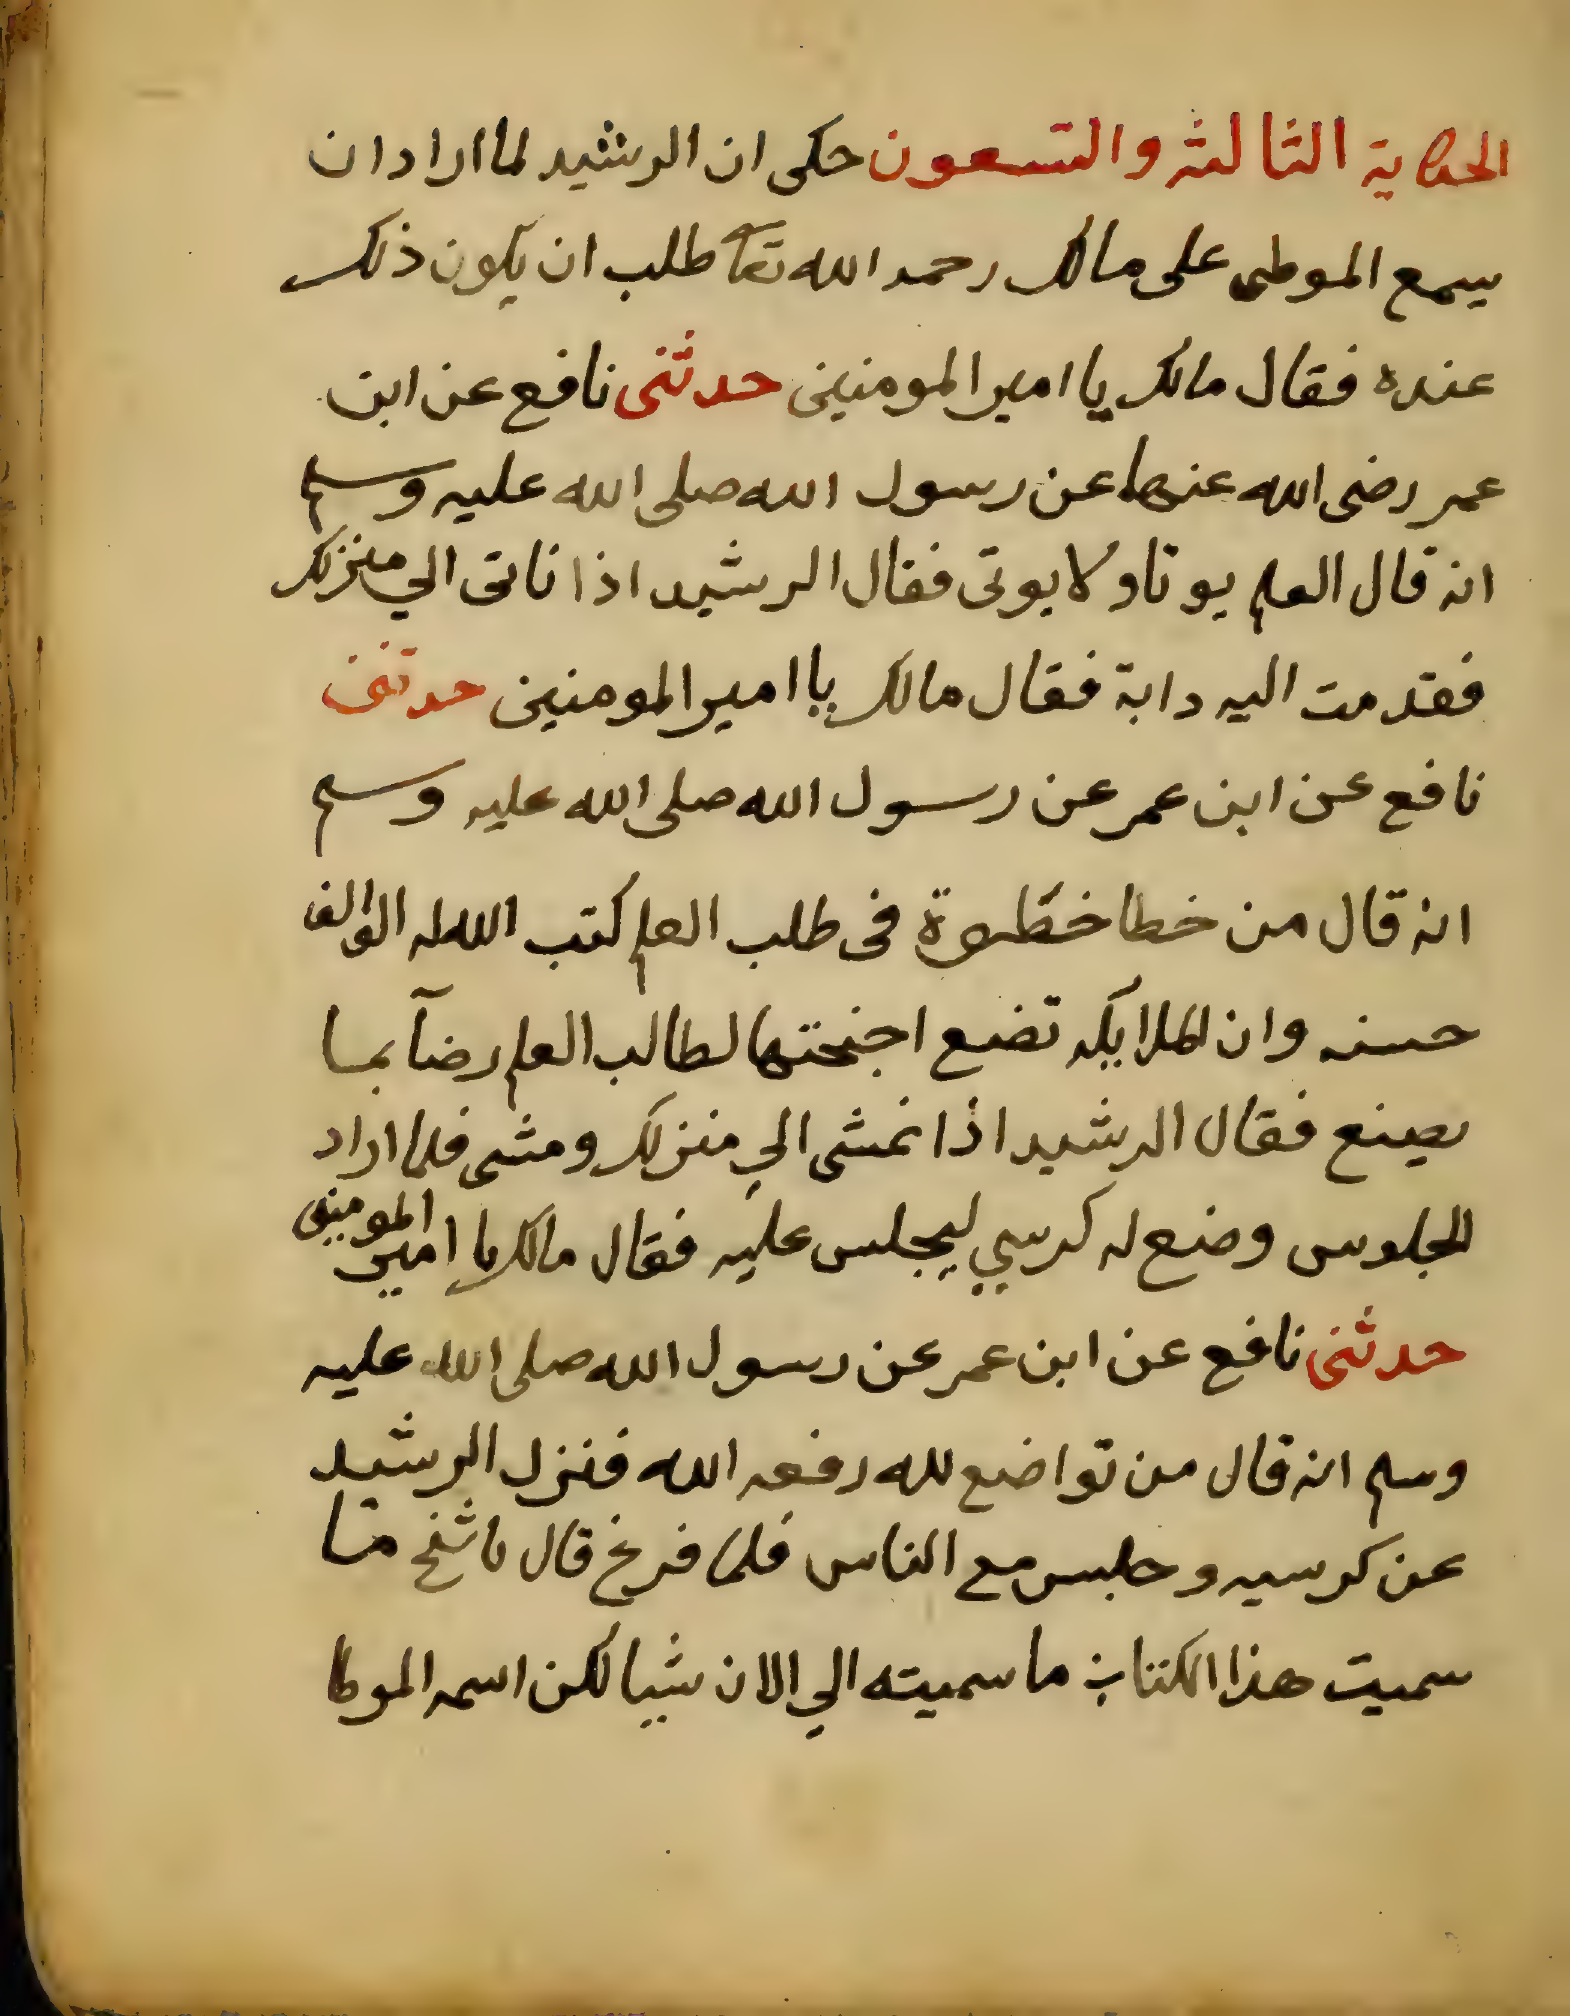 الحكاية الثالثه والتسعون حكى ان الرشيد لما اراد ان
يسمع الموطى على مالك رحمه الله تعا طلب ان يكون ذلك
عنده فقال مالك يا امير المومنين حدثنى نافع عن ابن
عمر رضى الله عنهما عن رسول الله صلى الله عليه وسلم
انه قال العلم يوتا ولا يوتى فقال الرشيد اذا ناتى الي منزلك
فقدمت اليه دابة فقال مالك يا امير المومنين حدثنى
نافع عن ابن عمر عن رسول الله صلى الله عليه وسلم
انه قال من خطا خطوة فى طلب العلم كتب الله له الف الف
حسنه وان الملايكه تضع اجنحتها لطالب العلم رضآ بما
يصنع فقال الرشيد اذا نمشى الي منزلك ومشى فلما اراد
الجلوس وضع له كرسي ليجلس عليه فقال مالك يا امير المومنين
حدثنى نافع عن ابن عمر عن رسول الله صلى الله عليه
وسلم انه قال من تواضع لله رفعه الله فنزل الرشيد
عن كرسيه وجلس مع الناس فلما فرغ قال يا شيخ متا
سميت هذا الكتاب ما سميته الي الان شيا لكن اسمه الموطا